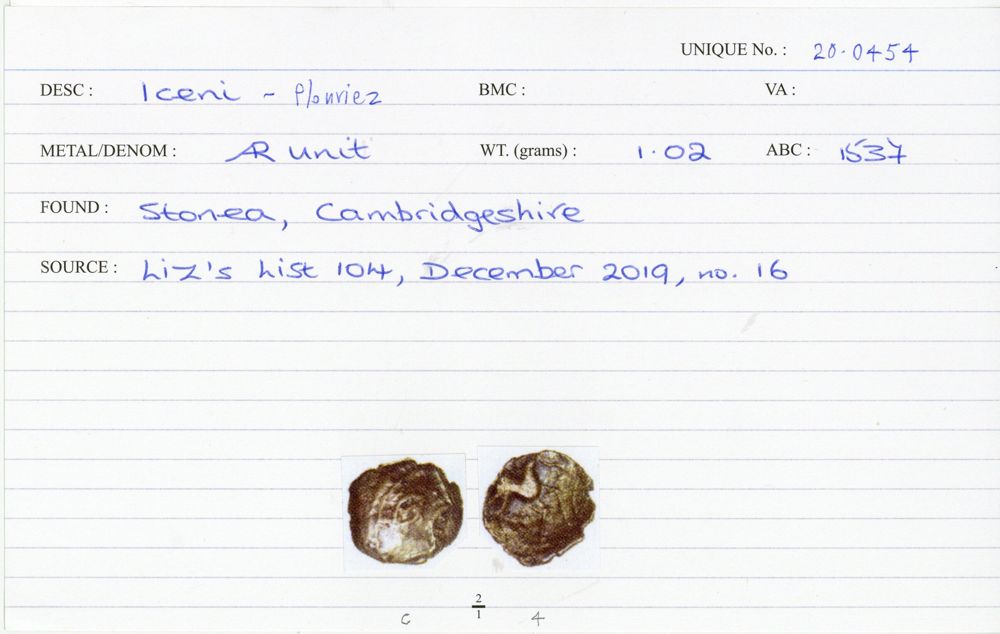 UNIQUE No. : 20.0454
DESC : Iceni - Plouviez BMC : VA :
METAL/DENOM : AR unit WT. (grams) : 1.02 ABC : 1537
FOUND : Stonea, Cambridgeshire
SOURCE : Liz's List 104, December 2019, no. 16
2
1
C 4